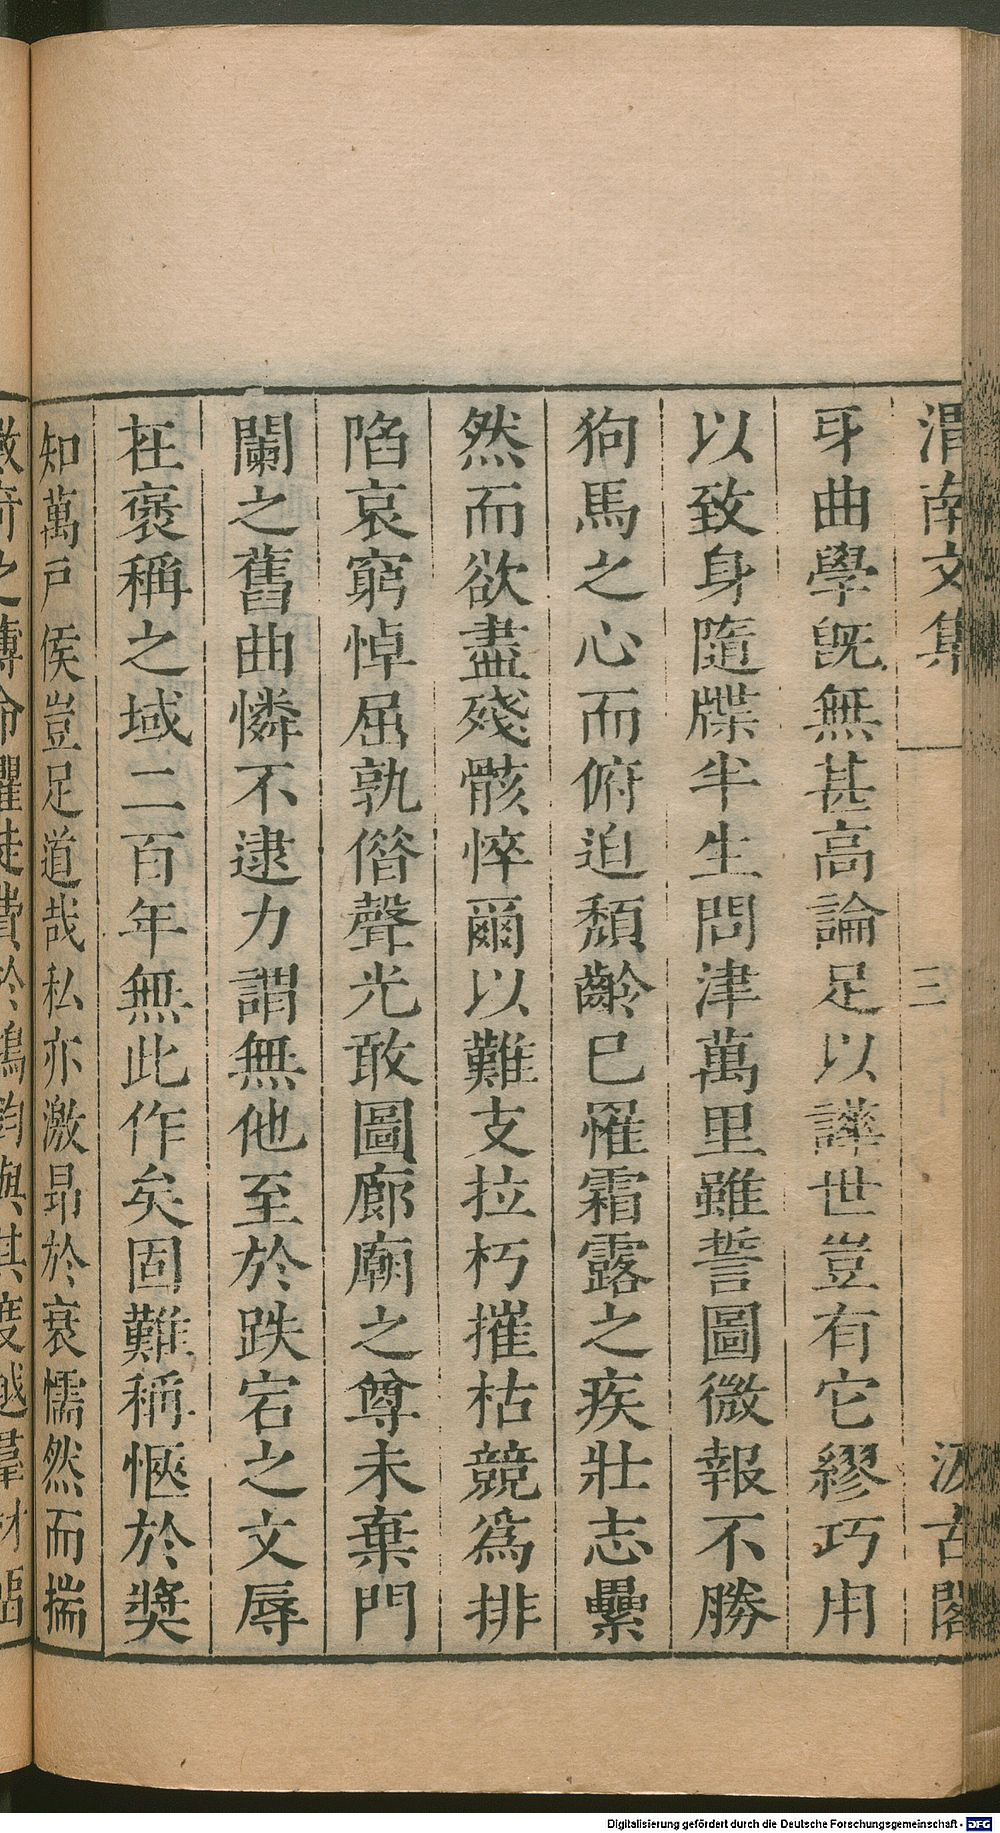 渭南文集 三 汲古閣
身曲學既無甚高論足以譁世豈有它繆巧用
以致身隨牒半生問津萬里雖誓圖微報不勝
狗馬之心而俯迫頹齡已罹霜露之疾壯志纍
然而欲盡殘骸悴爾以難支拉朽摧枯競爲排
陷哀窮悼屈孰偕聲光敢圖廊廟之尊未棄門
闌之舊曲憐不逮力謂無他至於跌宕之文辱
在褒稱之域二百年無此作矣固難稱愜於獎
知萬戶侯豈足道哉私亦激昂於衰懦然而揣
Digitalisierung gefördert durch die Deutsche Forschungsgemeinschaft - DFG